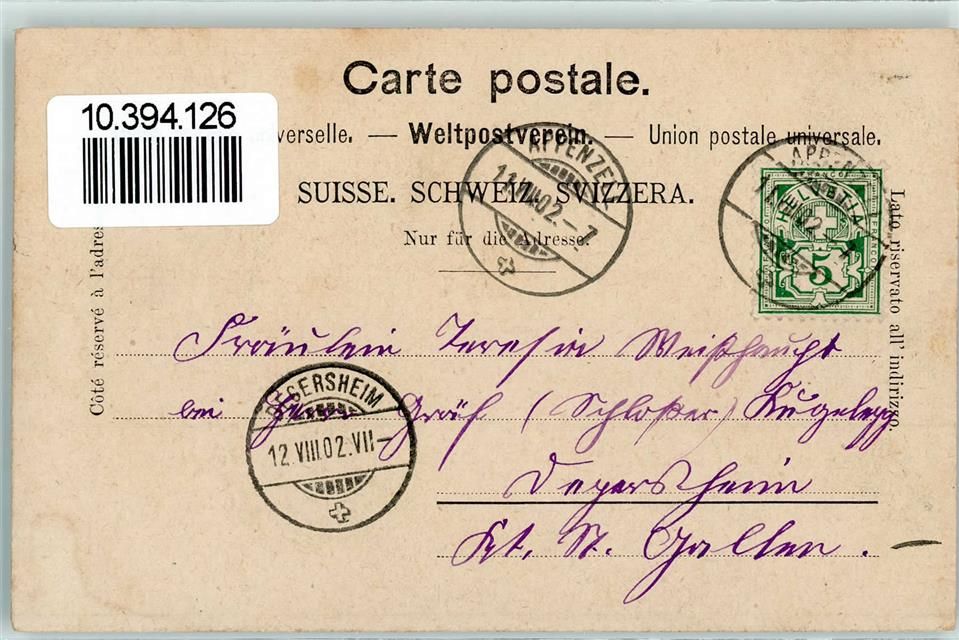 Carte postale.
10.394.126
verselle. — Weltpostverein. — Union postale universale.
SUISSE. SCHWEIZ. SVIZZERA.
Nur für die Adresse.
Côté réservé à l'adres
Lato riservato all' indirizzo.
APPENZELL
11.VIII.02.-7
APPENZELL
HELVETIA
FRANCO
5
Fräulein Teresia Weißhaupt
bei Herrn Gräf (Schloßer) Kugelegg
Degersheim
Kt. St. Gallen.
DEGERSHEIM
12.VIII.02.VII-